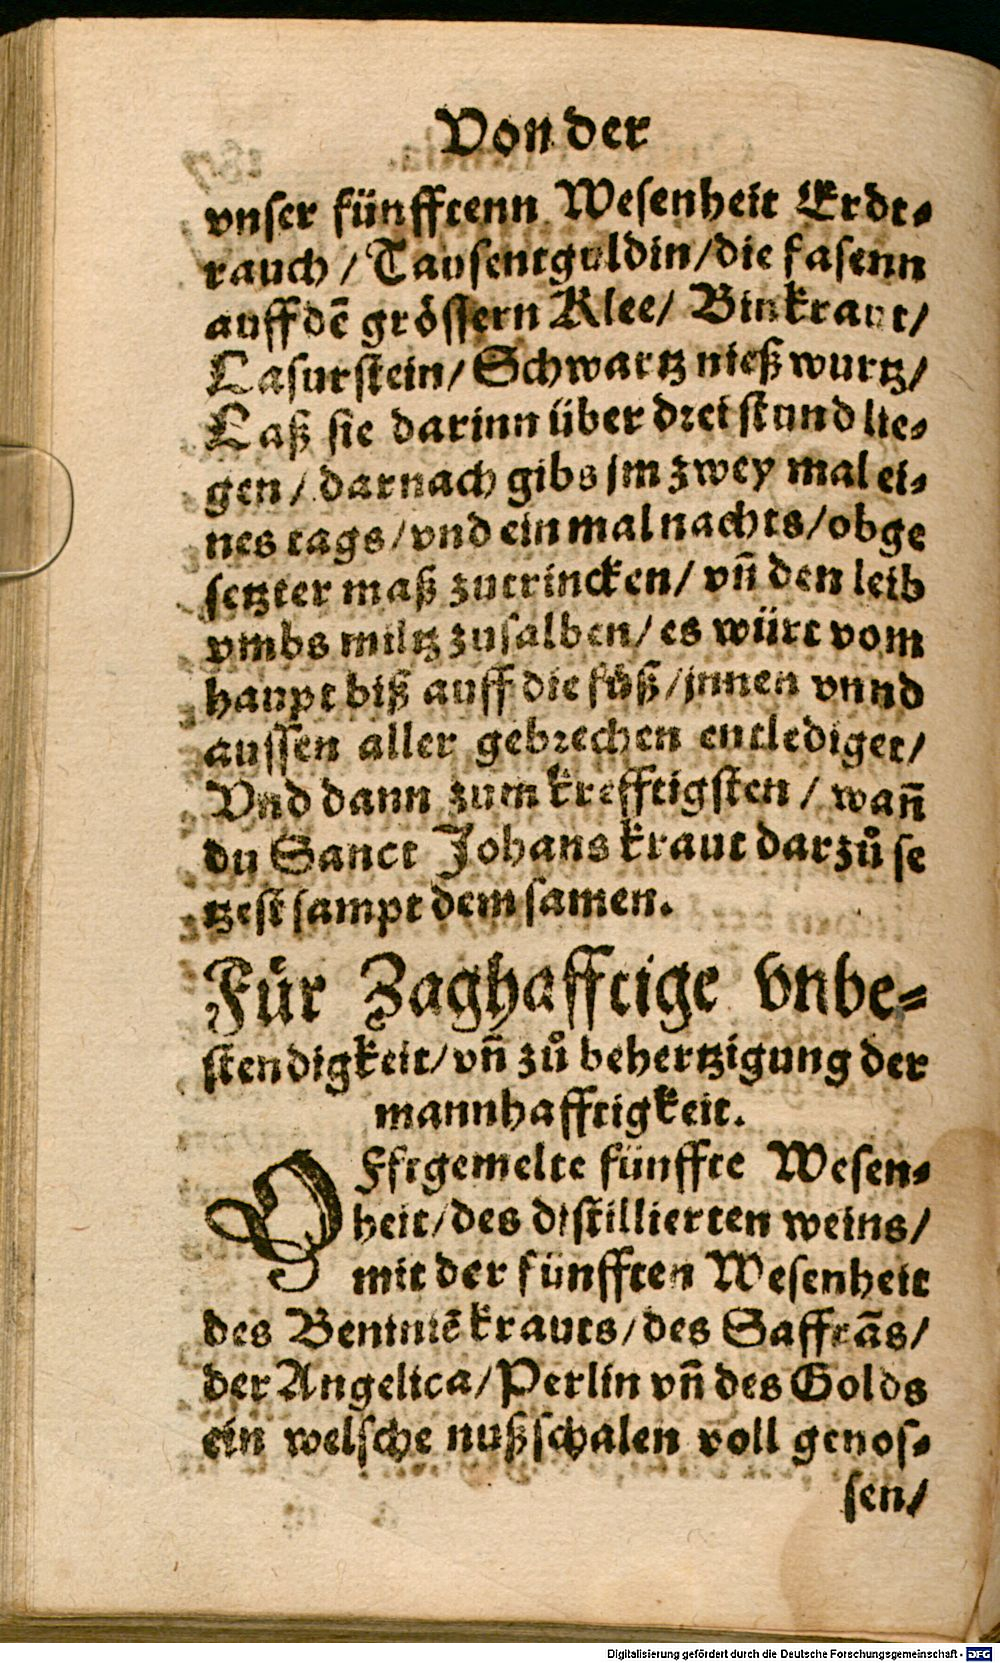 Von der
vnser fünfftenn Wesenheit Erdt-
rauch / Tausentguldin/die fasenn
auff dẽ grössern Klee/ Binkraut/
Lasurstein/ Schwartz nießwurtz/
Laß sie darinn über drei stund lie-
gen / darnach gibs jm zwey mal ei-
nes tags/vnd ein mal nachts/obge
setzter maß zutrincken/ vñ den leib
vmbs miltz zusalben/ es würt vom
haupt biß auff die füß/jnnen vnnd
aussen aller gebrechen entlediget/
Vnd dann zum krefftigsten / wañ
du Sanct Johans kraut darzů se
tzest sampt dem samen.
Für Zaghafftige vnbe-
stendigkeit/vñ zů behertzigung der
mannhafftigkeit.
OFftgemelte fünffte Wesen-
heit/des distillierten weins/
mit der fünfften Wesenheit
des Beninië krauts/des Saffrãs/
der Angelica/Perlin vñ des Golds
ein welsche nußschalen voll genos-
sen/
Digitalisierung gefördert durch die Deutsche Forschungsgemeinschaft - DFG